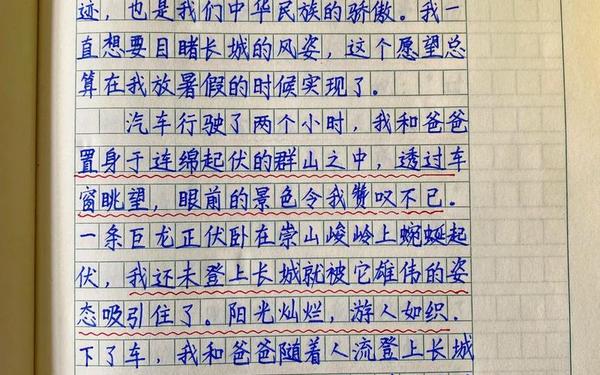 迹，也是我们中华民族的骄傲。我一
直想要目睹长城的风姿，这个愿望总
算在我放暑假的时候实现了。
汽车行驶了两个小时，我和爸爸
置身于连绵起伏的群山之中，透过车
窗眺望，眼前的景色令我赞叹不已。
一条巨龙正伏卧在崇山峻岭上蜿蜒起
伏，我还未登上长城就被它雄伟的姿
态吸引住了。阳光灿烂，游人如织.
下了车，我和爸爸随着人流登上长城